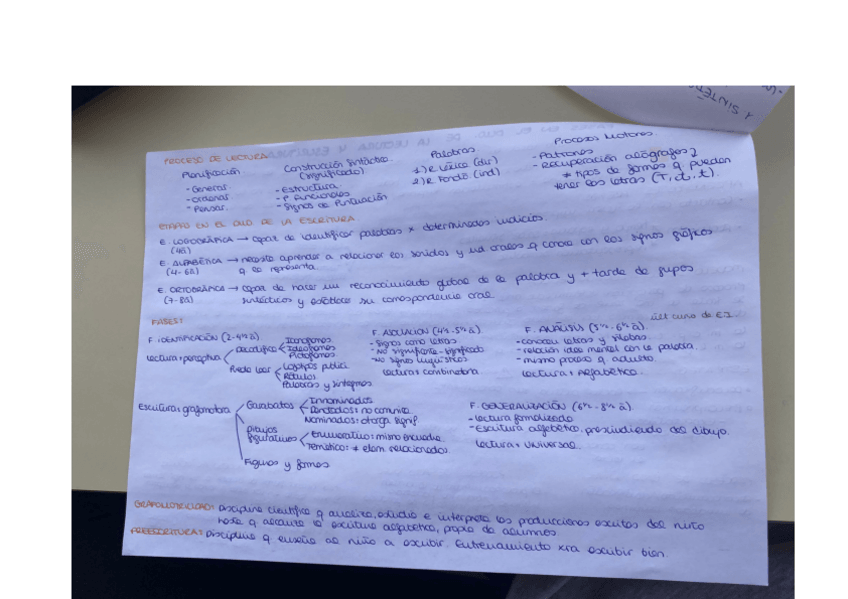 1. SINTÉ
PROCESO DE LECTURA
Planificación
- Generar
- ordenar
- Pensar..
Construcción Sintáctica.
(significado)
- Estructura.
- P. Funcionales
- Signos de Puntuación
Palabras
1) R léxica (dir)
2) R Fonolo (ind)
Procesos Motores.
- Patrones
- Recuperación alógrafos
≠ tipos de formas q pueden
tener las letras (T, t, t).
ETAPAS EN EL DLLO DE LA ESCRITURA
E. LOGOGRÁFICA → capaz de identificar palabras x determinados indicios.
(4a)
E. ALFABÉTICA → necesita aprender a relacionar los sonidos y ud orales q conoce con los signos gráficos
(4-6a) q los representa.
E ORTOGRÁFICA → capaz de hacer un reconocimiento global de la palabra y + tarde de grupos
(7-8a) sintácticos y establecer su correspondencia oral.
FASES:
últ curso de E.I.
F. IDENTIFICACIÓN (2-4 1/2 a)
Lectura: perceptiva
Decodifica
Iconofonos
Ideofonos
Pictofonos
Puede leer
Logotipos public
Rótulos
Palabras y sintagmas
F. ASOCIACION (4 1/2 - 5 1/2 a).
- Signos como letras
- No significante - significado
- No signos lingüísticos
Lectura: combinatoria
F. ANÁLISIS (5 1/2 - 6 1/2 a).
- conocen letras y sílabas.
- relación idea mental con la palabra.
- mismo proceso q adulto.
Lectura: Alfabético.
Escritura: grafomotora
Garabatos
Innominados
Nominados: otorga signif
Dibujos
figurativos
Enumerativo: mismo encuadre
Temático: ≠ elem relacionados
Figuras y formas
F. GENERALIZACIÓN (6 1/2 - 8 1/2 a).
- Lectura formalizada
- Escritura alfabética, prescindiendo del dibujo.
Lectura: Universal.
GRAFOMOTRICIDAD: Disciplina científica q analiza, estudia e interpreta las producciones escritas del niño
hasta q alcanza la escritura alfabética, propia de alumnos.
PREESCRITURA: Disciplina q enseña al niño a escribir. Entrenamiento xra escribir bien.